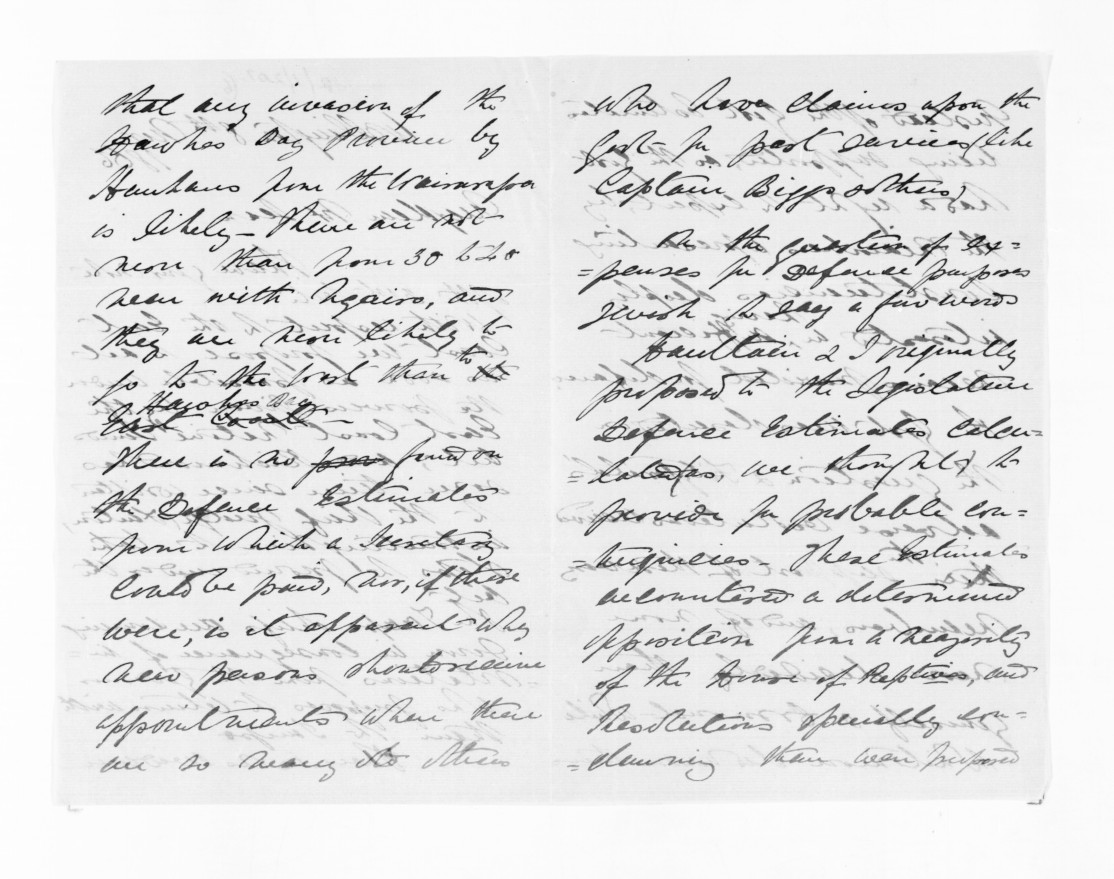 that any invasion of the
Hawkes' Bay Province by
Hauhaus from the Wairarapa
is likely - There are not
more than from 30 to 40
men with Ngairo, and
they are more likely to
go to the West than to the
Hawkes Bay
East Coast -
There is no fund on
the Defence Estimates
from which a Secretary
could be paid, nor, if there
were, is it apparent why
new persons should receive
appointments when there
are so many others
who have claims upon the
Govt. for past services (like
Captain Biggs & others)
On the question of Ex=
=penses for Defence purposes
I wish to say a few words
Haultain & I originally
proposed to the Legislature
Defence Estimates Calcu=
=lated (as, we thought) to
provide for probable con=
=tingencies - These Estimates
encountered a determined
opposition from a majority
of the House of Reptives, and
Resolutions specially con=
=demning them were proposed